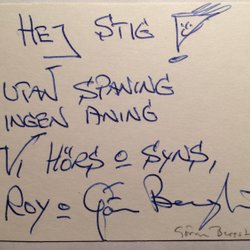 HEJ STIG!
UTAN SPANING
INGEN ANING
VI HÖRS o SYNS,
ROY o Göran
Göran